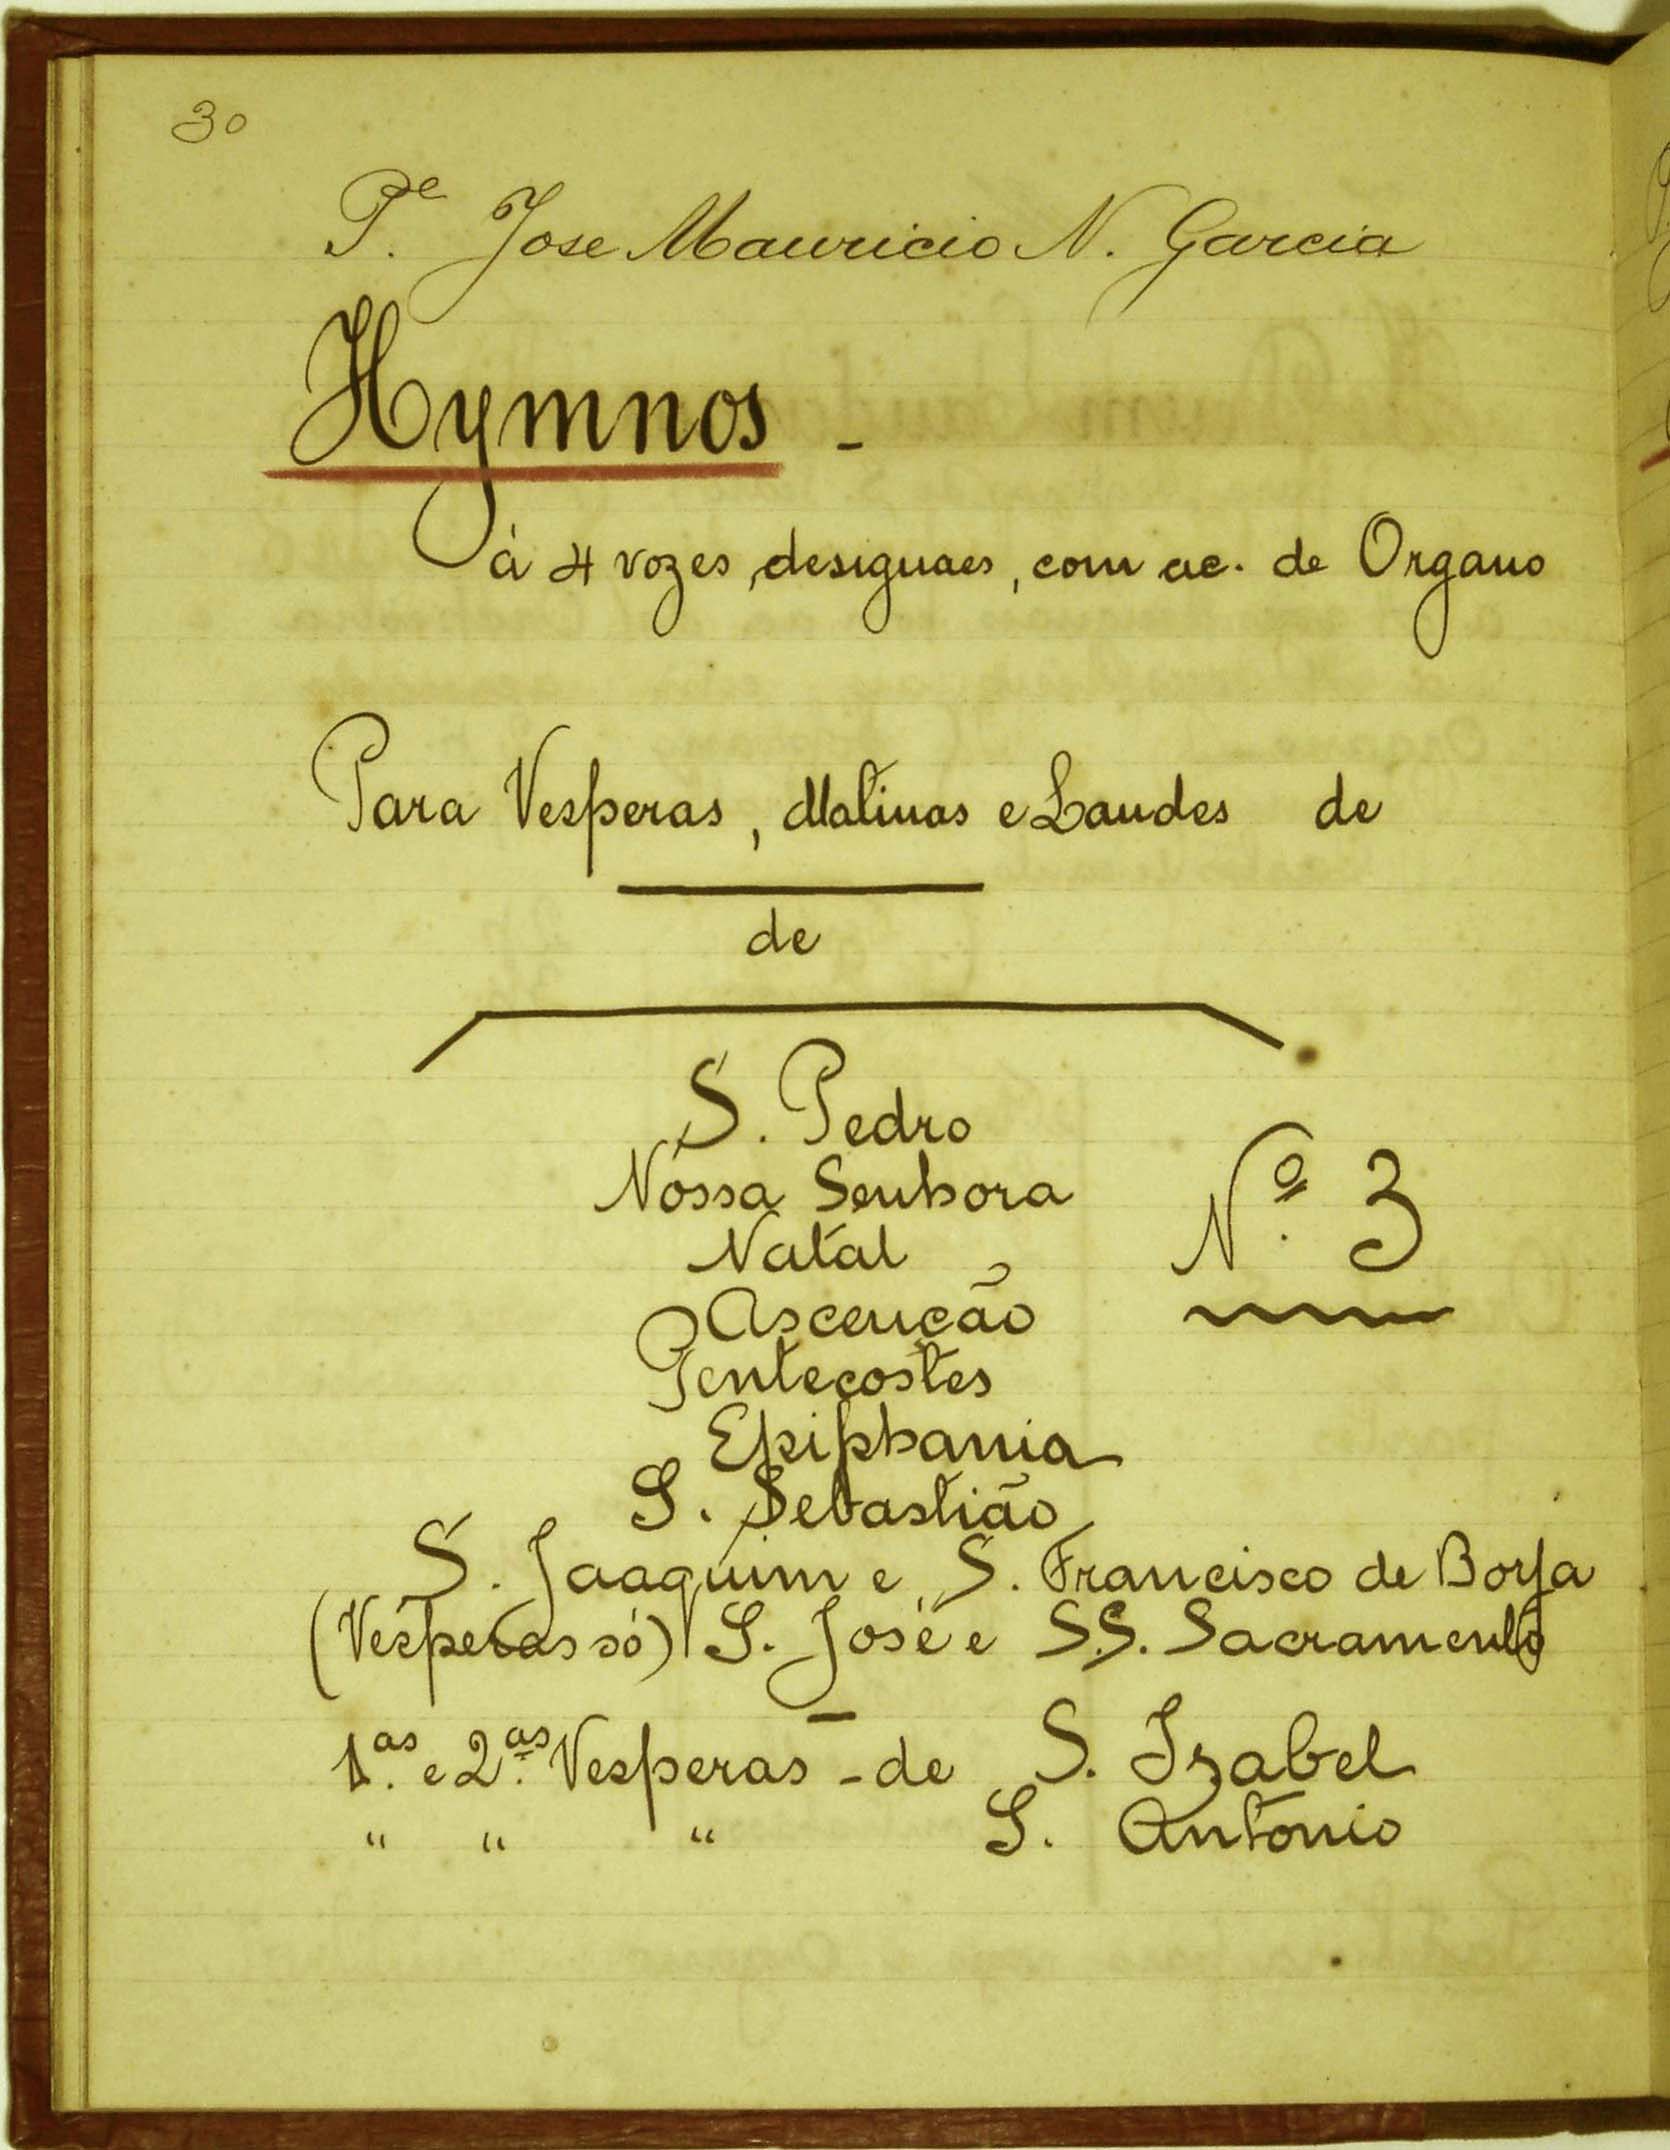 30
Pe. Jose Mauricio N. Garcia
Hymnos -
à 4 vozes, desiguaes, com ac. de Organo
Para Vesperas, Matinas e Laudes de
de
S. Pedro
Nossa Senhora
Natal
Nº. 3
Ascenção
Pentecostes
Epiphania
S. Sebastião
S. Joaquim e S. Francisco de Borja
(Vesperas só) S. José e S.S. Sacramento
1.as e 2.as Vesperas - de S. Izabel
" " " S. Antonio